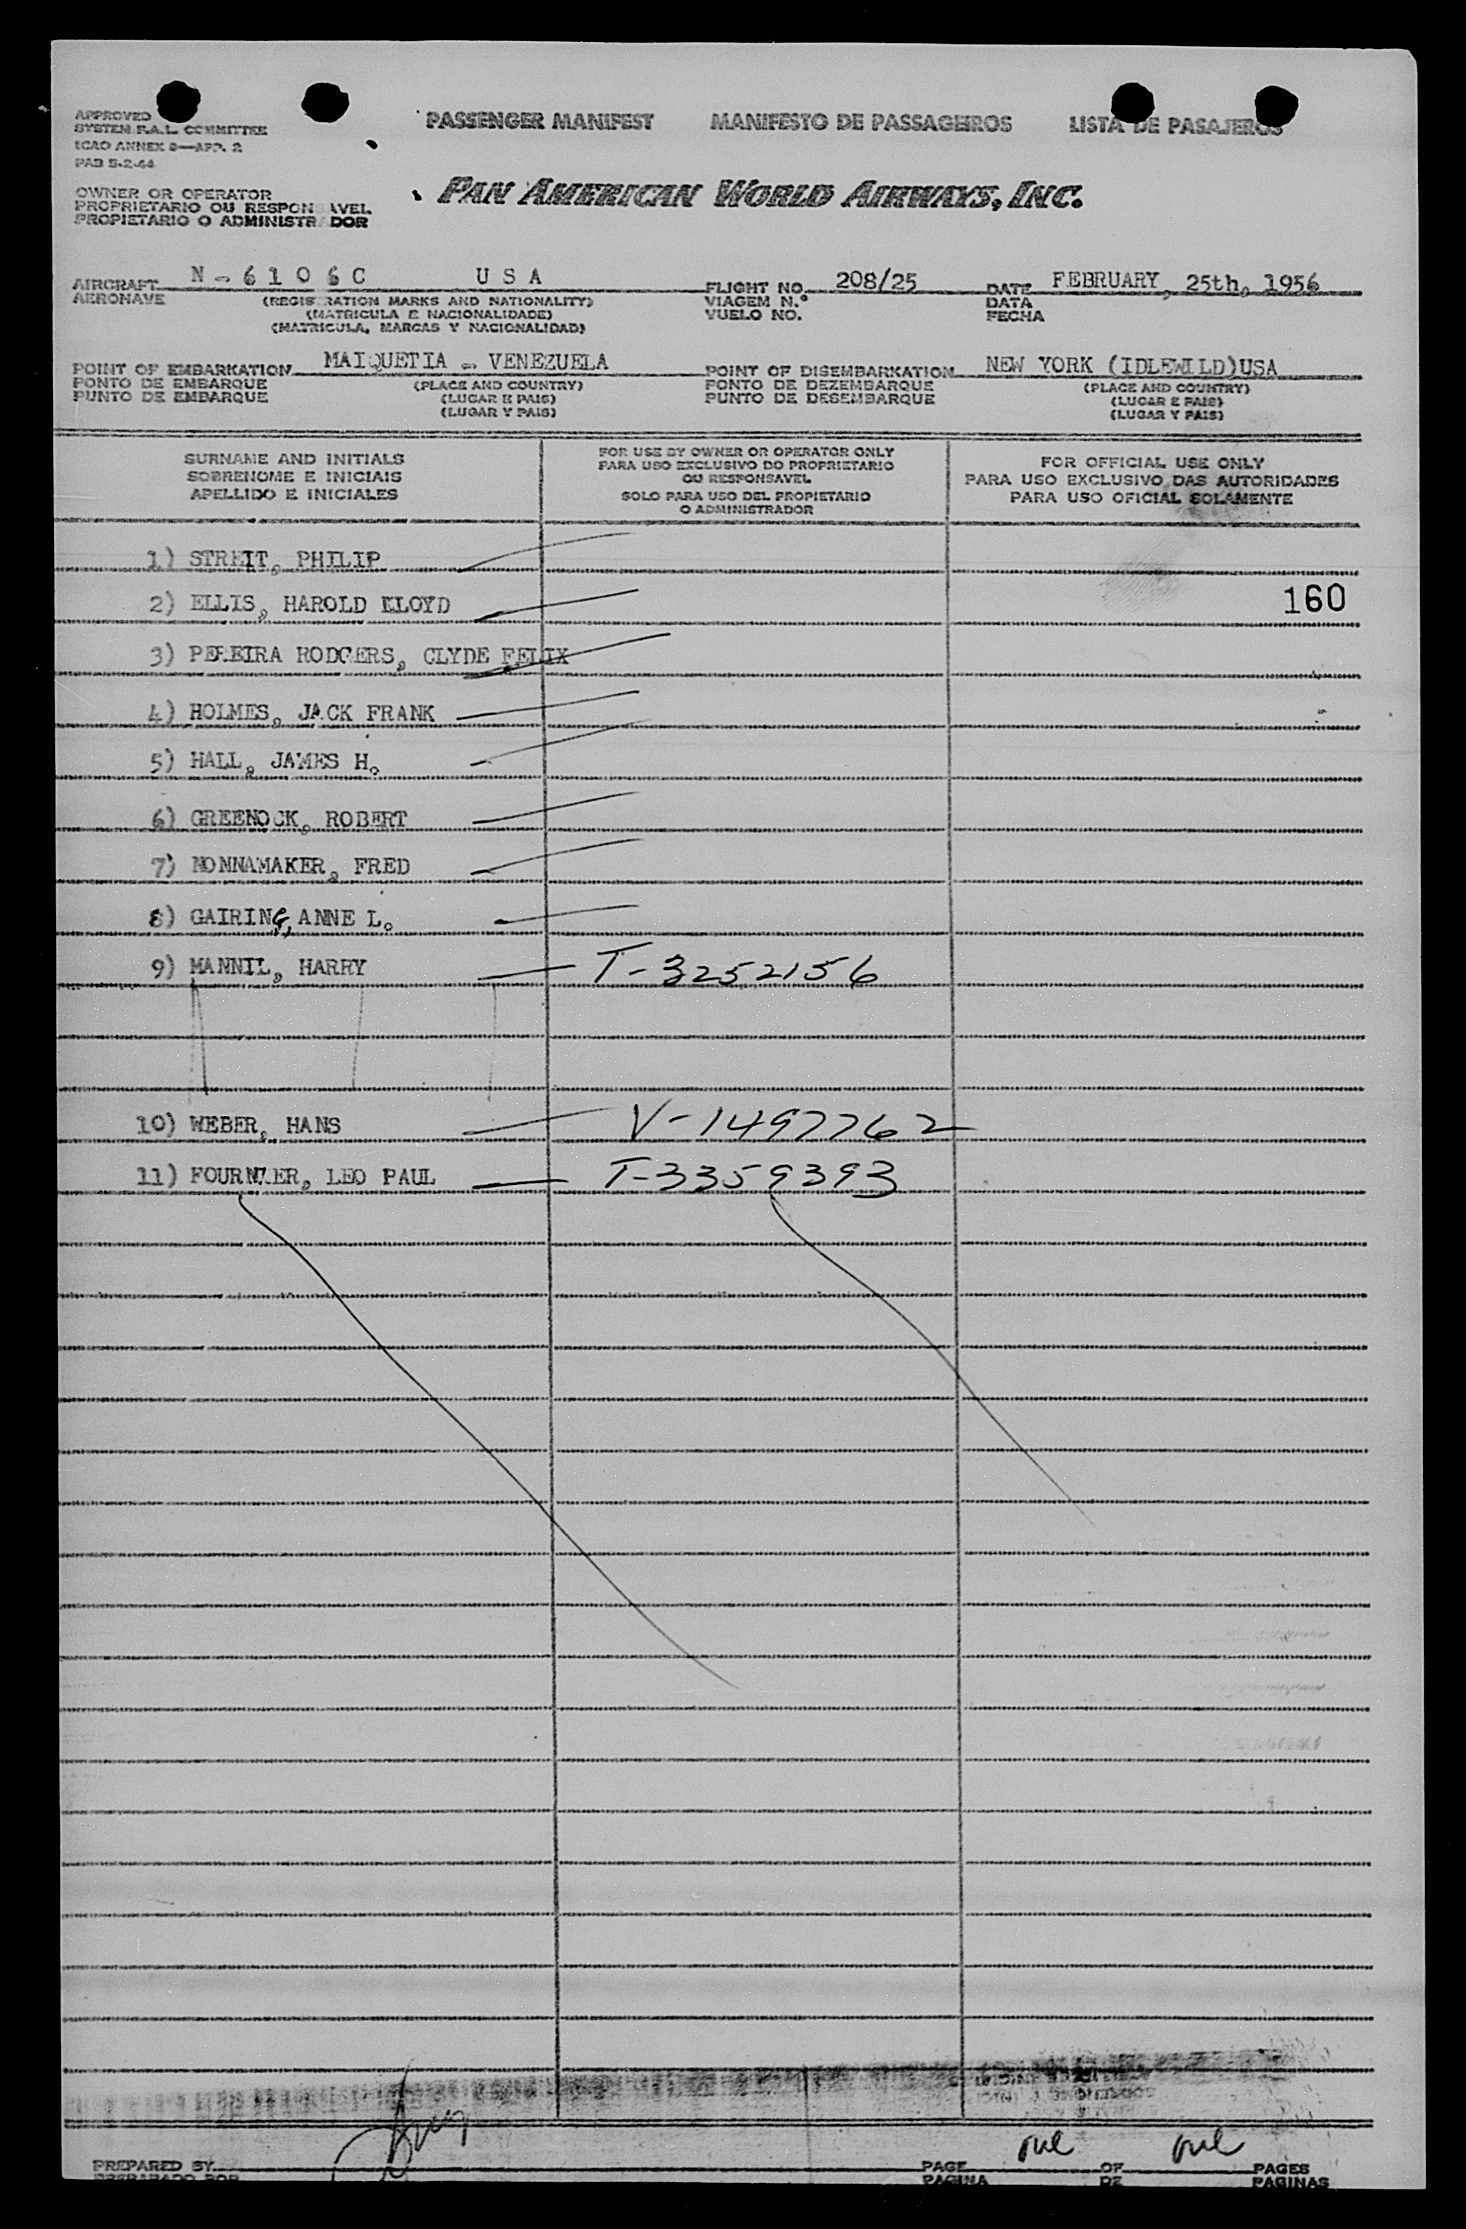 APPROVED
SYSTEM F.A.L. COMMITTEE
ICAO ANNEX 9—APP. 2
PAB 5-2-44
PASSENGER MANIFEST MANIFESTO DE PASSAGEIROS LISTA DE PASAJEROS
OWNER OR OPERATOR
PROPRIETARIO OU RESPONSAVEL
PROPIETARIO O ADMINISTRADOR
PAN AMERICAN WORLD AIRWAYS, INC.
AIRCRAFT N-6106C USA FLIGHT NO. 208/25 DATE FEBRUARY, 25th, 1956
AERONAVE (REGISTRATION MARKS AND NATIONALITY) VIAGEM N.º DATA
(MATRICULA E NACIONALIDADE) VUELO NO. FECHA
(MATRICULA, MARCAS Y NACIONALIDAD)
POINT OF EMBARKATION MAIQUETIA - VENEZUELA POINT OF DISEMBARKATION NEW YORK (IDLEWILD)USA
PONTO DE EMBARQUE (PLACE AND COUNTRY) PONTO DE DEZEMBARQUE (PLACE AND COUNTRY)
PUNTO DE EMBARQUE (LUGAR E PAIS) PUNTO DE DESEMBARQUE (LUGAR E PAIS)
(LUGAR Y PAIS) (LUGAR Y PAIS)
SURNAME AND INITIALS
SOBRENOME E INICIAIS
APELLIDO E INICIALES
FOR USE BY OWNER OR OPERATOR ONLY
PARA USO EXCLUSIVO DO PROPRIETARIO
OU RESPONSAVEL
SOLO PARA USO DEL PROPIETARIO
O ADMINISTRADOR
FOR OFFICIAL USE ONLY
PARA USO EXCLUSIVO DAS AUTORIDADES
PARA USO OFICIAL SOLAMENTE
1) STREIT, PHILIP
2) ELLIS, HAROLD ELOYD 160
3) PEREIRA RODGERS, CLYDE FELIX
4) HOLMES, JACK FRANK
5) HALL, JAMES H.
6) GREENOCK, ROBERT
7) NONNAMAKER, FRED
8) GAIRING, ANNE L.
9) MANNIL, HARRY T-3252156
10) WEBER, HANS V-1497762
11) FOURNIER, LEO PAUL T-3359393
PREPARED BY PAGE one OF one PAGES
PREPARADO POR PAGINA DE PAGINAS